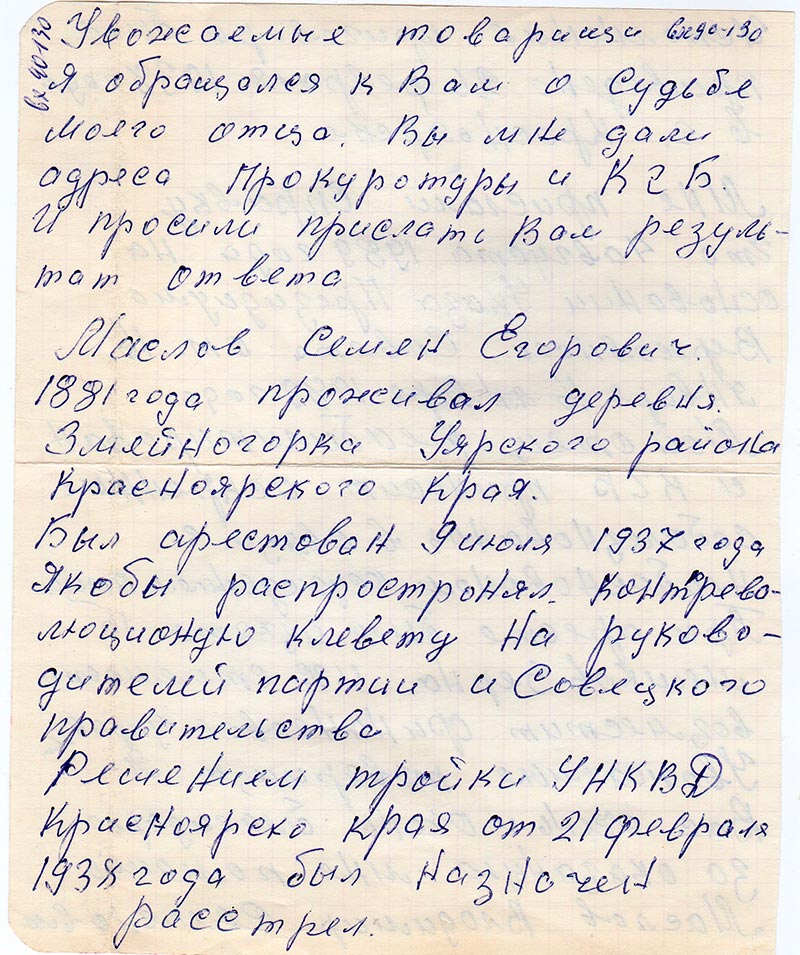 Уважаемые товарищи вх90-130
вх90-130
Я обращался к Вам о судьбе
моего отца. Вы мне дали
адреса Прокуротуры и КГБ.
И просили прислать Вам резуль-
тат ответа
Маслов Семён Егорович.
1881 года проживал деревня.
Змейногорка Уярского района
Красноярского Края.
Был арестован 9 июля 1937 года
Якобы распространял. Контрево-
люционую клевету на руково-
дителей партии и Совецкого
правительства
Решением тройки УНКВД
Красноярско края от 21 февраля
1938 года был назначен
расстрел.